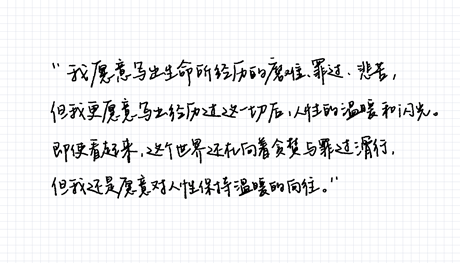 “我愿意写出生命所经历的磨难、罪过、悲苦，
但我更愿意写出经历过这一切后，人性的温暖和闪光。
即使看起来，这个世界还在向着贪婪与罪过滑行，
但我还是愿意对人性保持温暖的向往。”